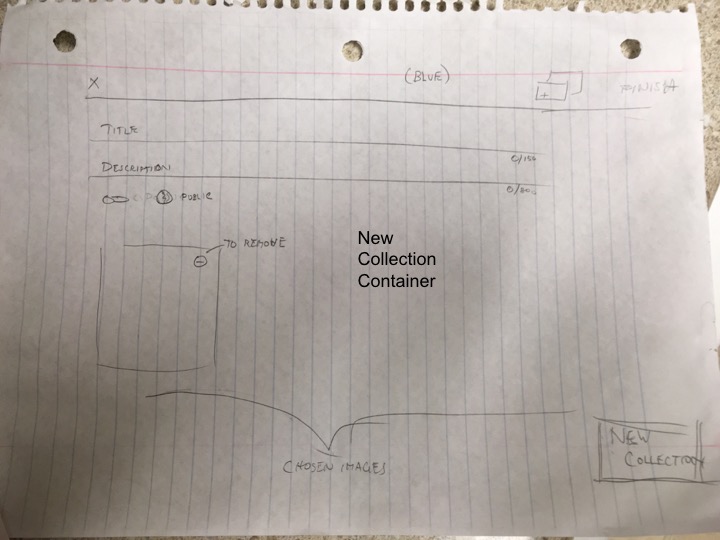 X
(BLUE)
+
TITLE
0/150
DESCRIPTION
PUBLIC
TO REMOVE
New
Collection
Container
CHOSEN IMAGES
NEW
COLLECTION